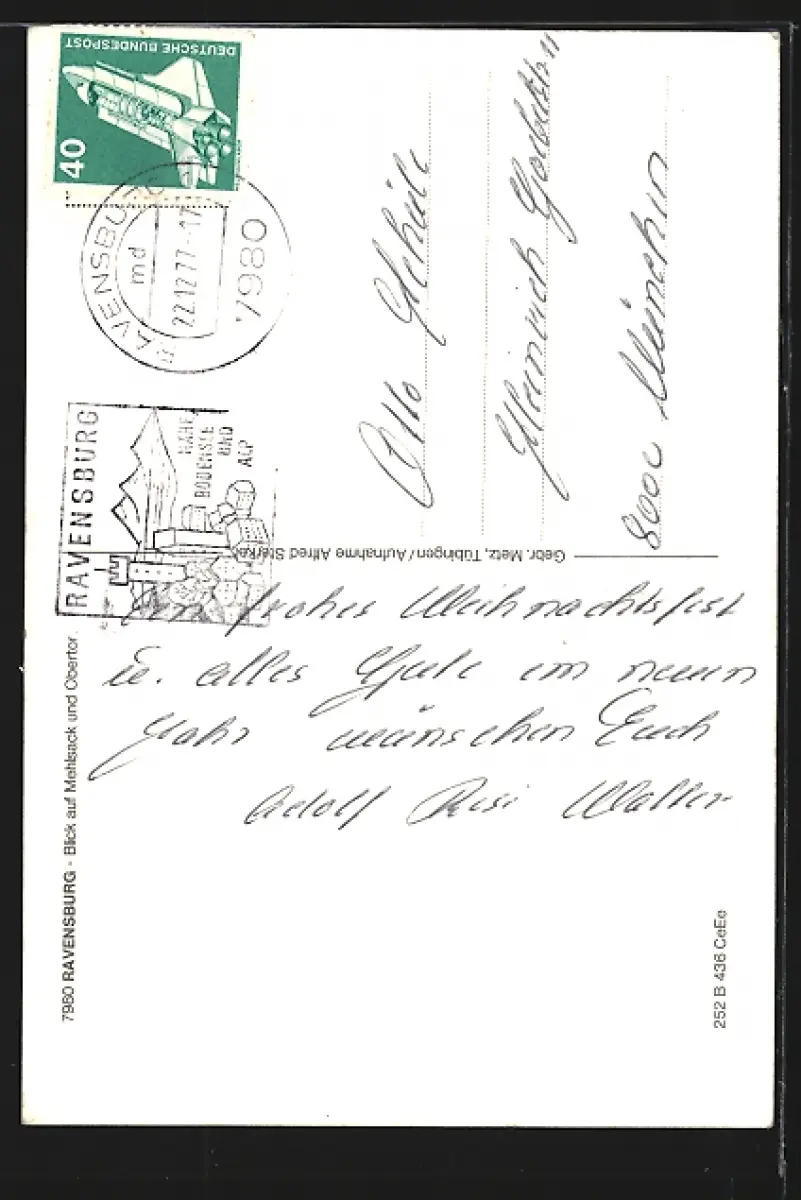 DEUTSCHE BUNDESPOST
40
RAVENSBURG 1
md
22.12.77-17
7980
RAVENSBURG
NAHE
BODENSEE
UND
ALP
Otto
Heinrich
München
Gebr. Metz, Tübingen/Aufnahme Alfred
Ein frohes Weihnachtsfest
u. alles Gute im neuen
Jahr wünschen Euch
Adolf Resi Walter
7980 RAVENSBURG - Blick auf Mehlsack und Obertor
252 B 436 CeEe